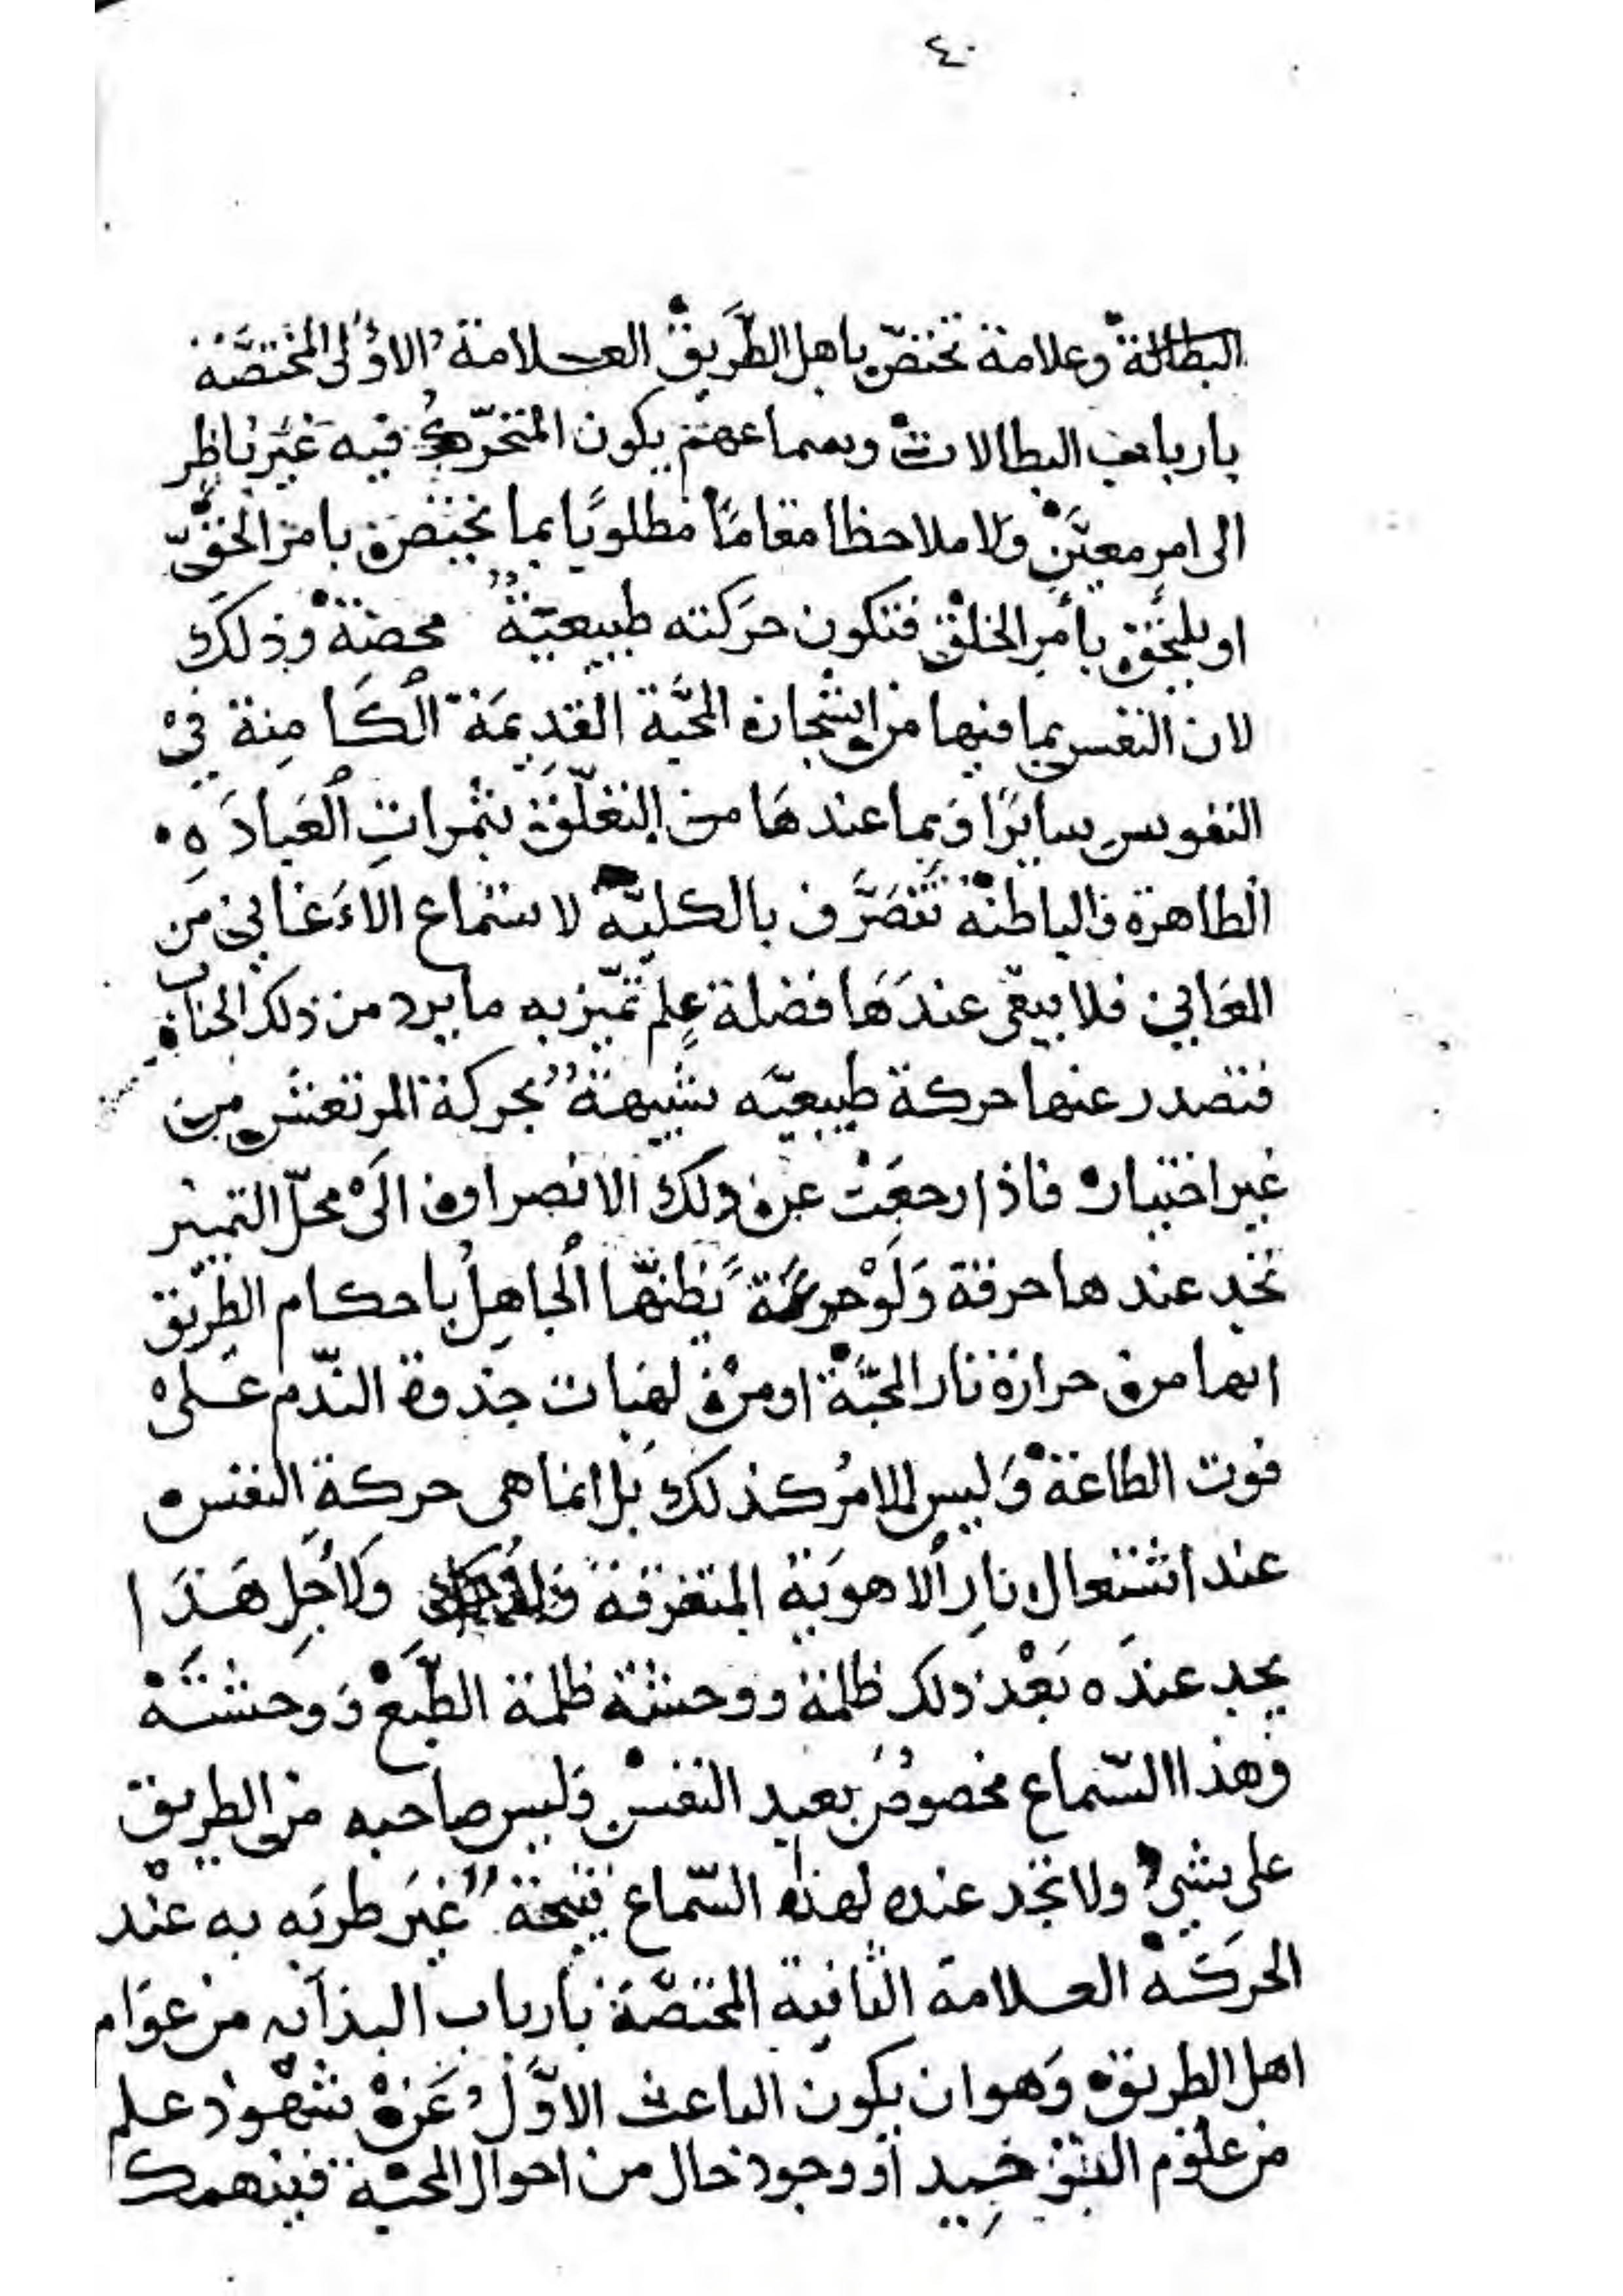 ٤٠
البطالة وعلامة تختص باهل الطَّريق العلامة الاولى المختصَّة
بارباب البطالات وسماعهم يكون المتحرّك فيه غيَر ناظِر
الى امرٍ معيَّنٍ وَلا ملاحظا مقامًا مطلوبًا بما يختصّ بامر الحقّ
او يلتحق بأمر الخلق فتكون حرَكته طبيعيّةً محضة وذلك
لان النفس بما فيها من اشجان المحَبَّة القدِيمَة الكَامِنة في
النفوس سايرًا وَبما عندهَا من التعلّق بثمراتِ العَبادَه
الظاهرة والباطنة تَتصَرَّف بالكليّه لاستماع الاَغاني مَن
المعَاني فلا يبقى عندَهَا فضلة عِلم تميّز به ما يرد من ذلك الجناب
فتصدر عنها حركة طبيعيّه شبيهةً بحركة المرتعش من
غير اختيار فاذا رجعَتْ عن ذلك الانصراف الَى محلّ التمييز
تجد عندها حرقة وَلَوْ يَظنّها الجاهِلُ باحكام الطريق
انها من حرارة نار المحبَّة او من لهبات جذوة الندّم عَلى
فوت الطاعة وَليس الامُر كذلك بَل انما هى حركةِ النفس
عند اشتعال نارِ الاهويَة المتفرقة وَلاَجلِ هَذَا
يجد عندَه بَعْد ذلك ظلمة ووحشة ظلمة الطَّبَعْ وَوحشتَهْ
وهذا السّماع مخصوصُ بعبد النفس وَليس صاحبه من الطريق
على شيء ولا تجد عنده لهذا السّماع نتيجة غيَر طربَه به عنْد
الحرَكَة العلامة الثانية المختصَّة بارباب البدايه من عوَام
اهل الطريق وَهو ان يكون الباعث الاوَّل عَن شهوْد علم
من علوم التوَحِيد أو وجود حال من احوال المحبّة فينهمك